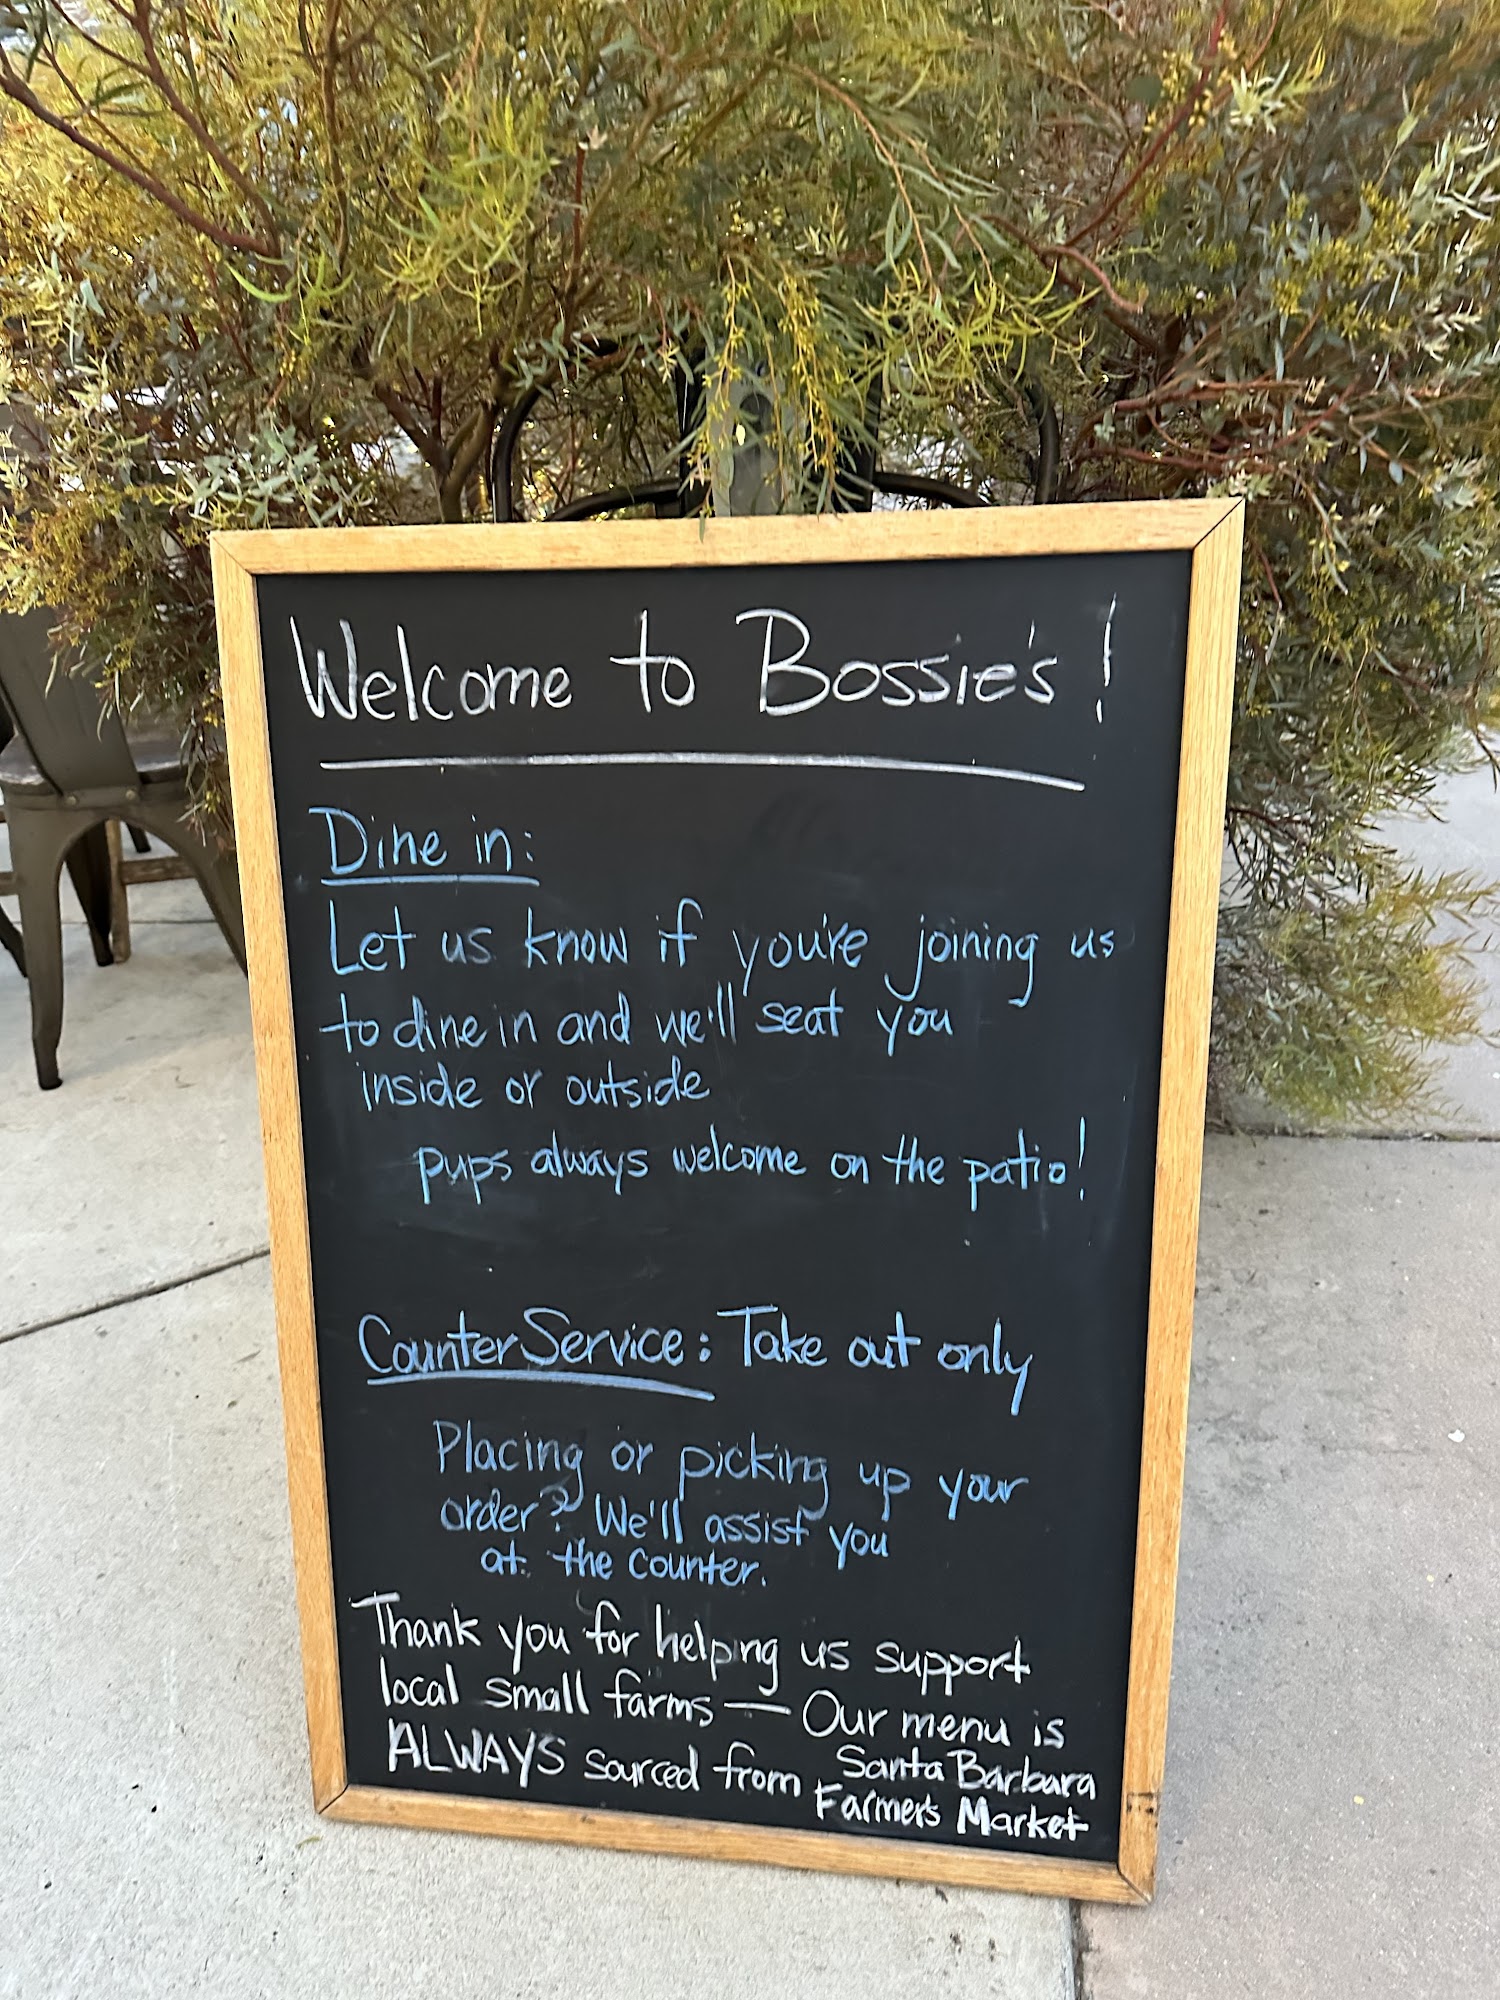 Welcome to Bossie's!
Dine in:
Let us know if you're joining us
to dine in and we'll seat you
inside or outside
pups always welcome on the patio!
Counter Service: Take out only
Placing or picking up your
order? We'll assist you
at the counter.
Thank you for helping us support
local small farms — Our menu is
ALWAYS sourced from Santa Barbara
Farmer's Market